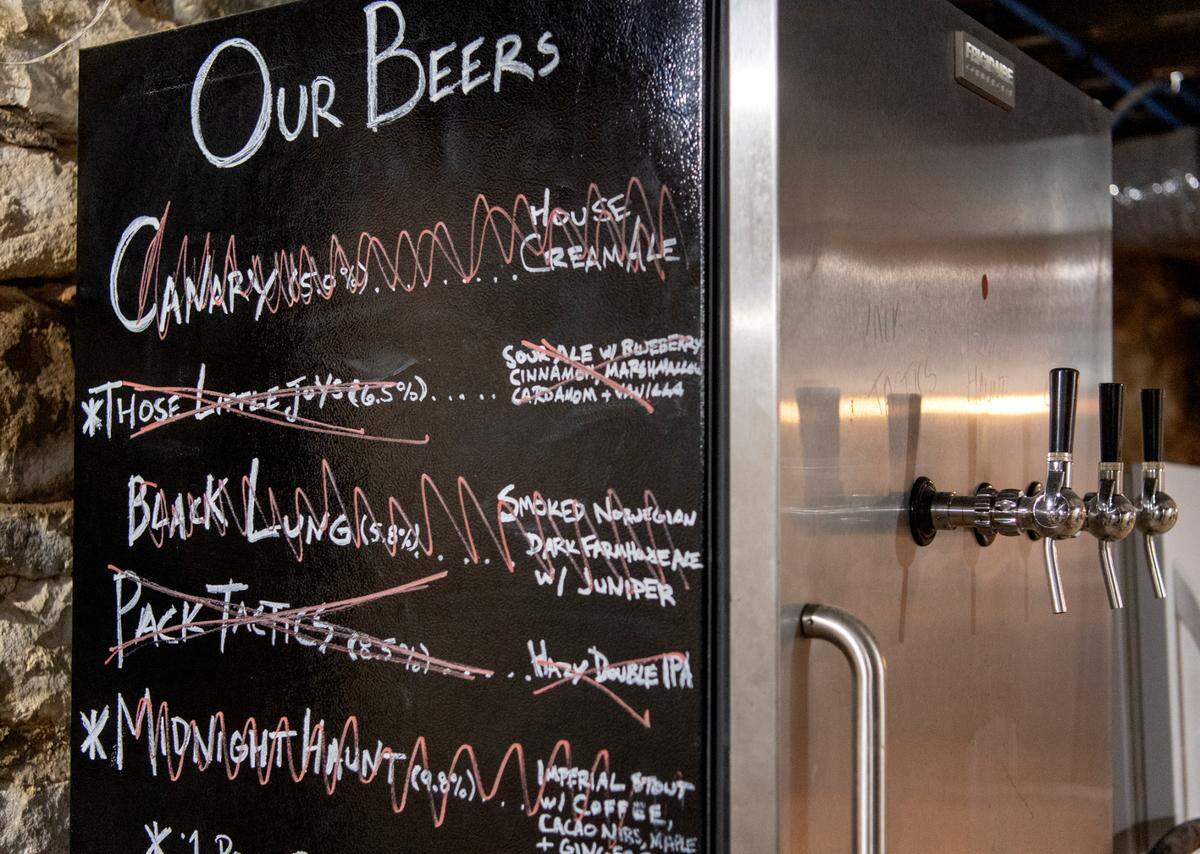 OUR BEERS
CANARY (5.0%)........ HOUSE
CREAM ALE
*THOSE LITTLE JOYS (6.5%)..... SOUR ALE W/ BLUEBERRY
CINNAMON, MARSHMALLOW
CARDAMOM + VANILLA
BLACK LUNG (5.8%).... SMOKED NORWEGIAN
DARK FARMHOUSE ALE
W/ JUNIPER
PACK TACTICS (8.5%)..... HAZY DOUBLE IPA
*MIDNIGHT HAUNT (9.8%)... IMPERIAL STOUT
W/ COFFEE,
CACAO NIBS, MAPLE
+
*
FRIGIDAIRE
TACTICS
HAUNT